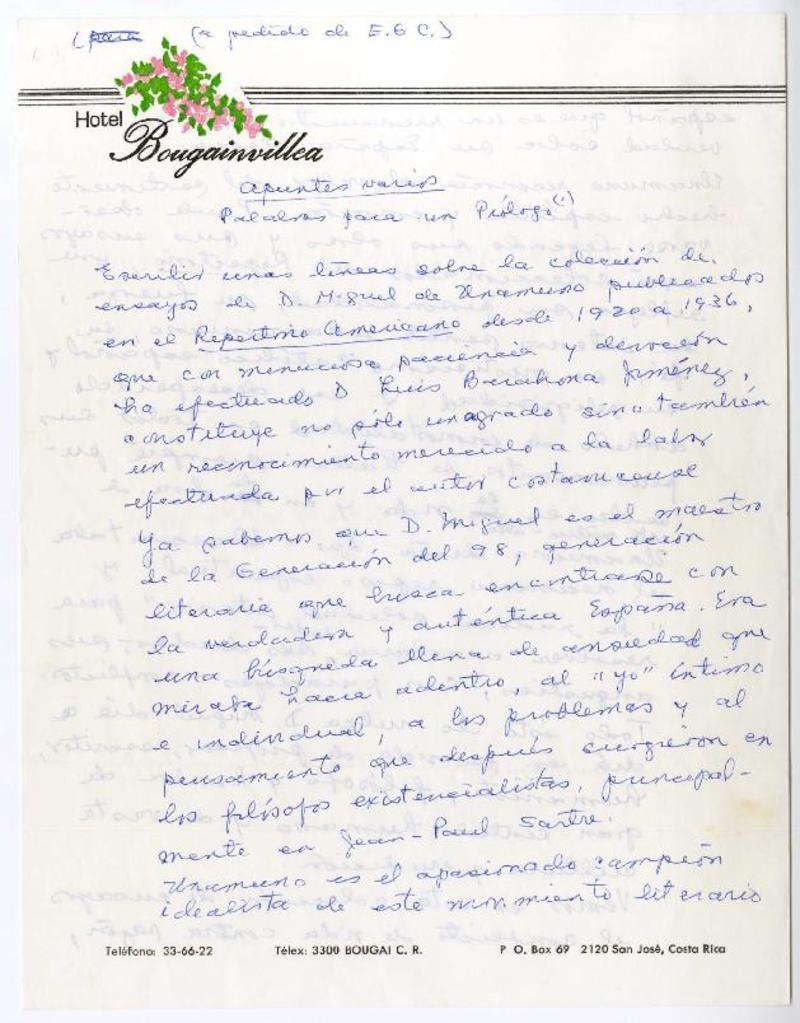 (para (a pedido de E.G C.)
Hotel
Bougainvillea
apuntes varios
Palabras para un Prólogo(1)
Escribir unas líneas sobre la colección de
ensayos de D. Miguel de Unamuno publicados
en el Repertorio Americano desde 1920 a 1936,
que con minuciosa paciencia y devoción
ha efectuado D Luis Barahona Jiménez,
constituye no sólo un agrado sino también
un reconocimiento merecido a la labor
efectuada por el autor costarricense
Ya sabemos que D. Miguel es el maestro
de la Generación del 98, generación
literaria que busca encontrarse con
la verdadera y auténtica España. Era
una búsqueda llena de ansiedad que
miraba hacia adentro, al "yo" íntimo
e individual, a los problemas y al
pensamiento que después surgieron en
los filósofos existencialistas, principal-
mente en Jean-Paul Sartre.
Unamuno es el apasionado campeón
idealista de este movimiento literario
Teléfono: 33-66-22 Télex: 3300 BOUGAI C. R. P O. Box 69 2120 San José, Costa Rica